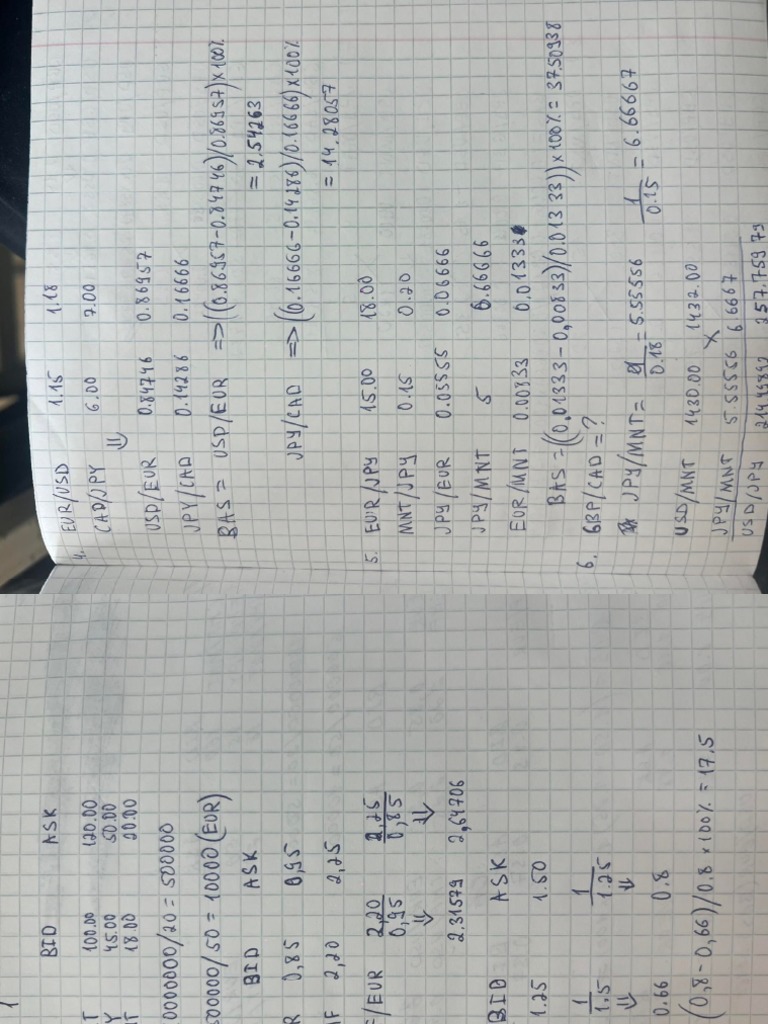 4. EUR/USD 1.15 1.18
CAD/JPY 6.00 7.00
⇓
USD/EUR 0.84746 0.86957
JPY/CAD 0.14286 0.16666
BAS = USD/EUR => ((0.86957-0.84746)/0.86957)x100%
= 2,54263
JPY/CAD => ((0.16666-0.14286)/0.16666)x100%
= 14.28057
5. EUR/JPY 15.00 18.00
MNT/JPY 0.15 0.20
JPY/EUR 0.05555 0.06666
JPY/MNT 5 6.66666
EUR/MNT 0.00833 0,01333
BAS = ((0,01333-0,00833)/0.01333))x100% = 37.50938
6. GBP/CAD = ?
JPY/MNT = 1/0.18 = 5.55556 1/0.15 = 6.66667
USD/MNT 1430.00 1432.00
X
JPY/MNT 5.55556 6.6667
USD/JPY
BID ASK
100.00 120.00
45.00 50.00
18.00 20.00
0000000/20 = 500000
500000/50 = 10000 (EUR)
BID ASK
R 0,85 0,95
F 2,20 2,25
/EUR 2,20/0,95 2,25/0,85
⇓ ⇓
2.31579 2,64706
BID ASK
1.25 1.50
1/1.5 1/1.25
⇓ ⇓
0.66 0.8
(0,8-0,66)/0.8 x 100% = 17.5